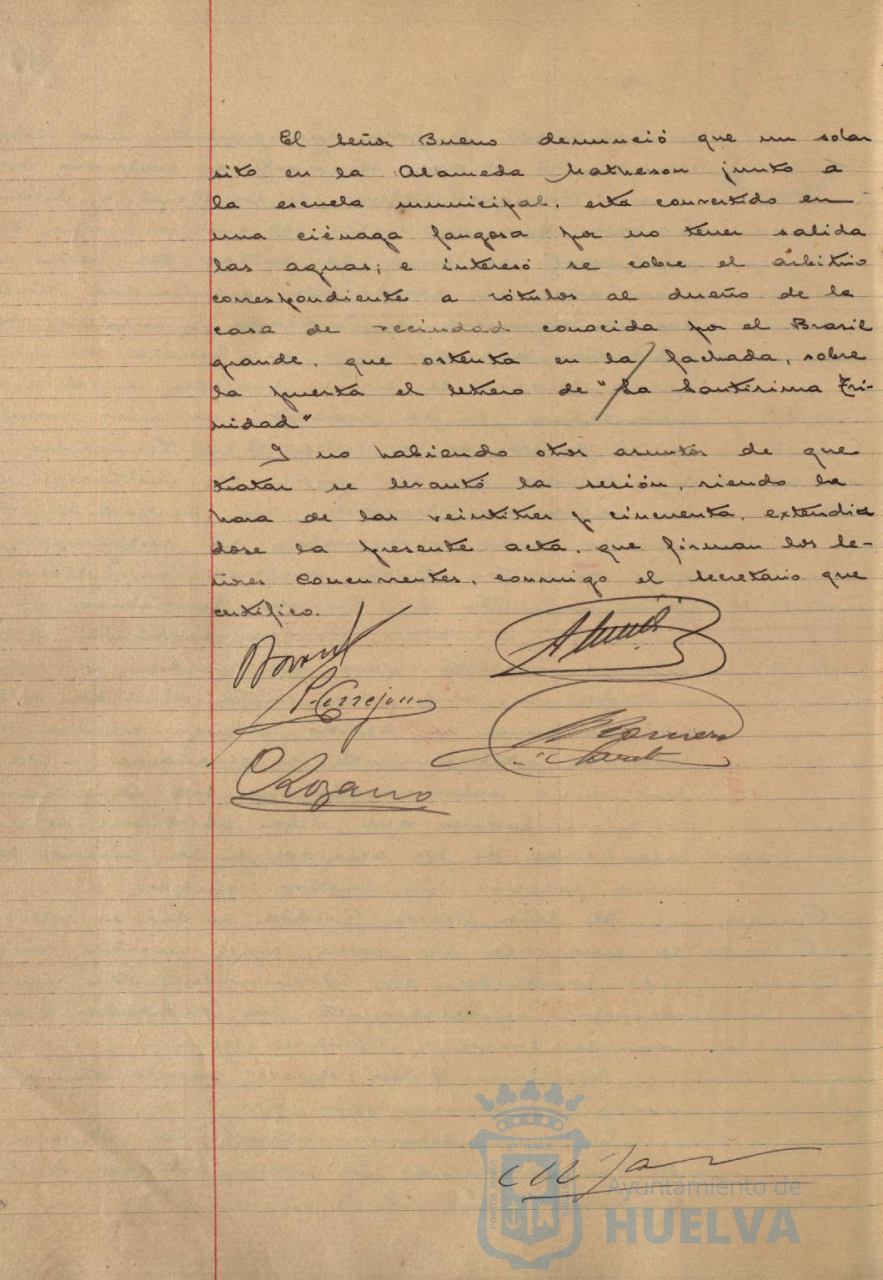 El señor Bueno denunció que un solar
sito en la Alameda Matheson junto a
la escuela municipal, está convertido en
una ciénaga fangosa por no tener salida
las aguas; e interesó se cobre el arbitrio
correspondiente a rótulos al dueño de la
casa de vecindad conocida por el Brasil
grande, que ostenta en la fachada, sobre
la puerta el letrero de "La Santísima Tri-
nidad"
Y no habiendo otros asuntos de que
tratar se levantó la sesión, siendo la
hora de las veintitres y cincuenta, extendién
dose la presente acta, que firman los se-
ñores concurrentes, conmigo el secretario que
certifico.
P. Cerrejon
Romero
Lozano
Ayuntamiento de
HUELVA